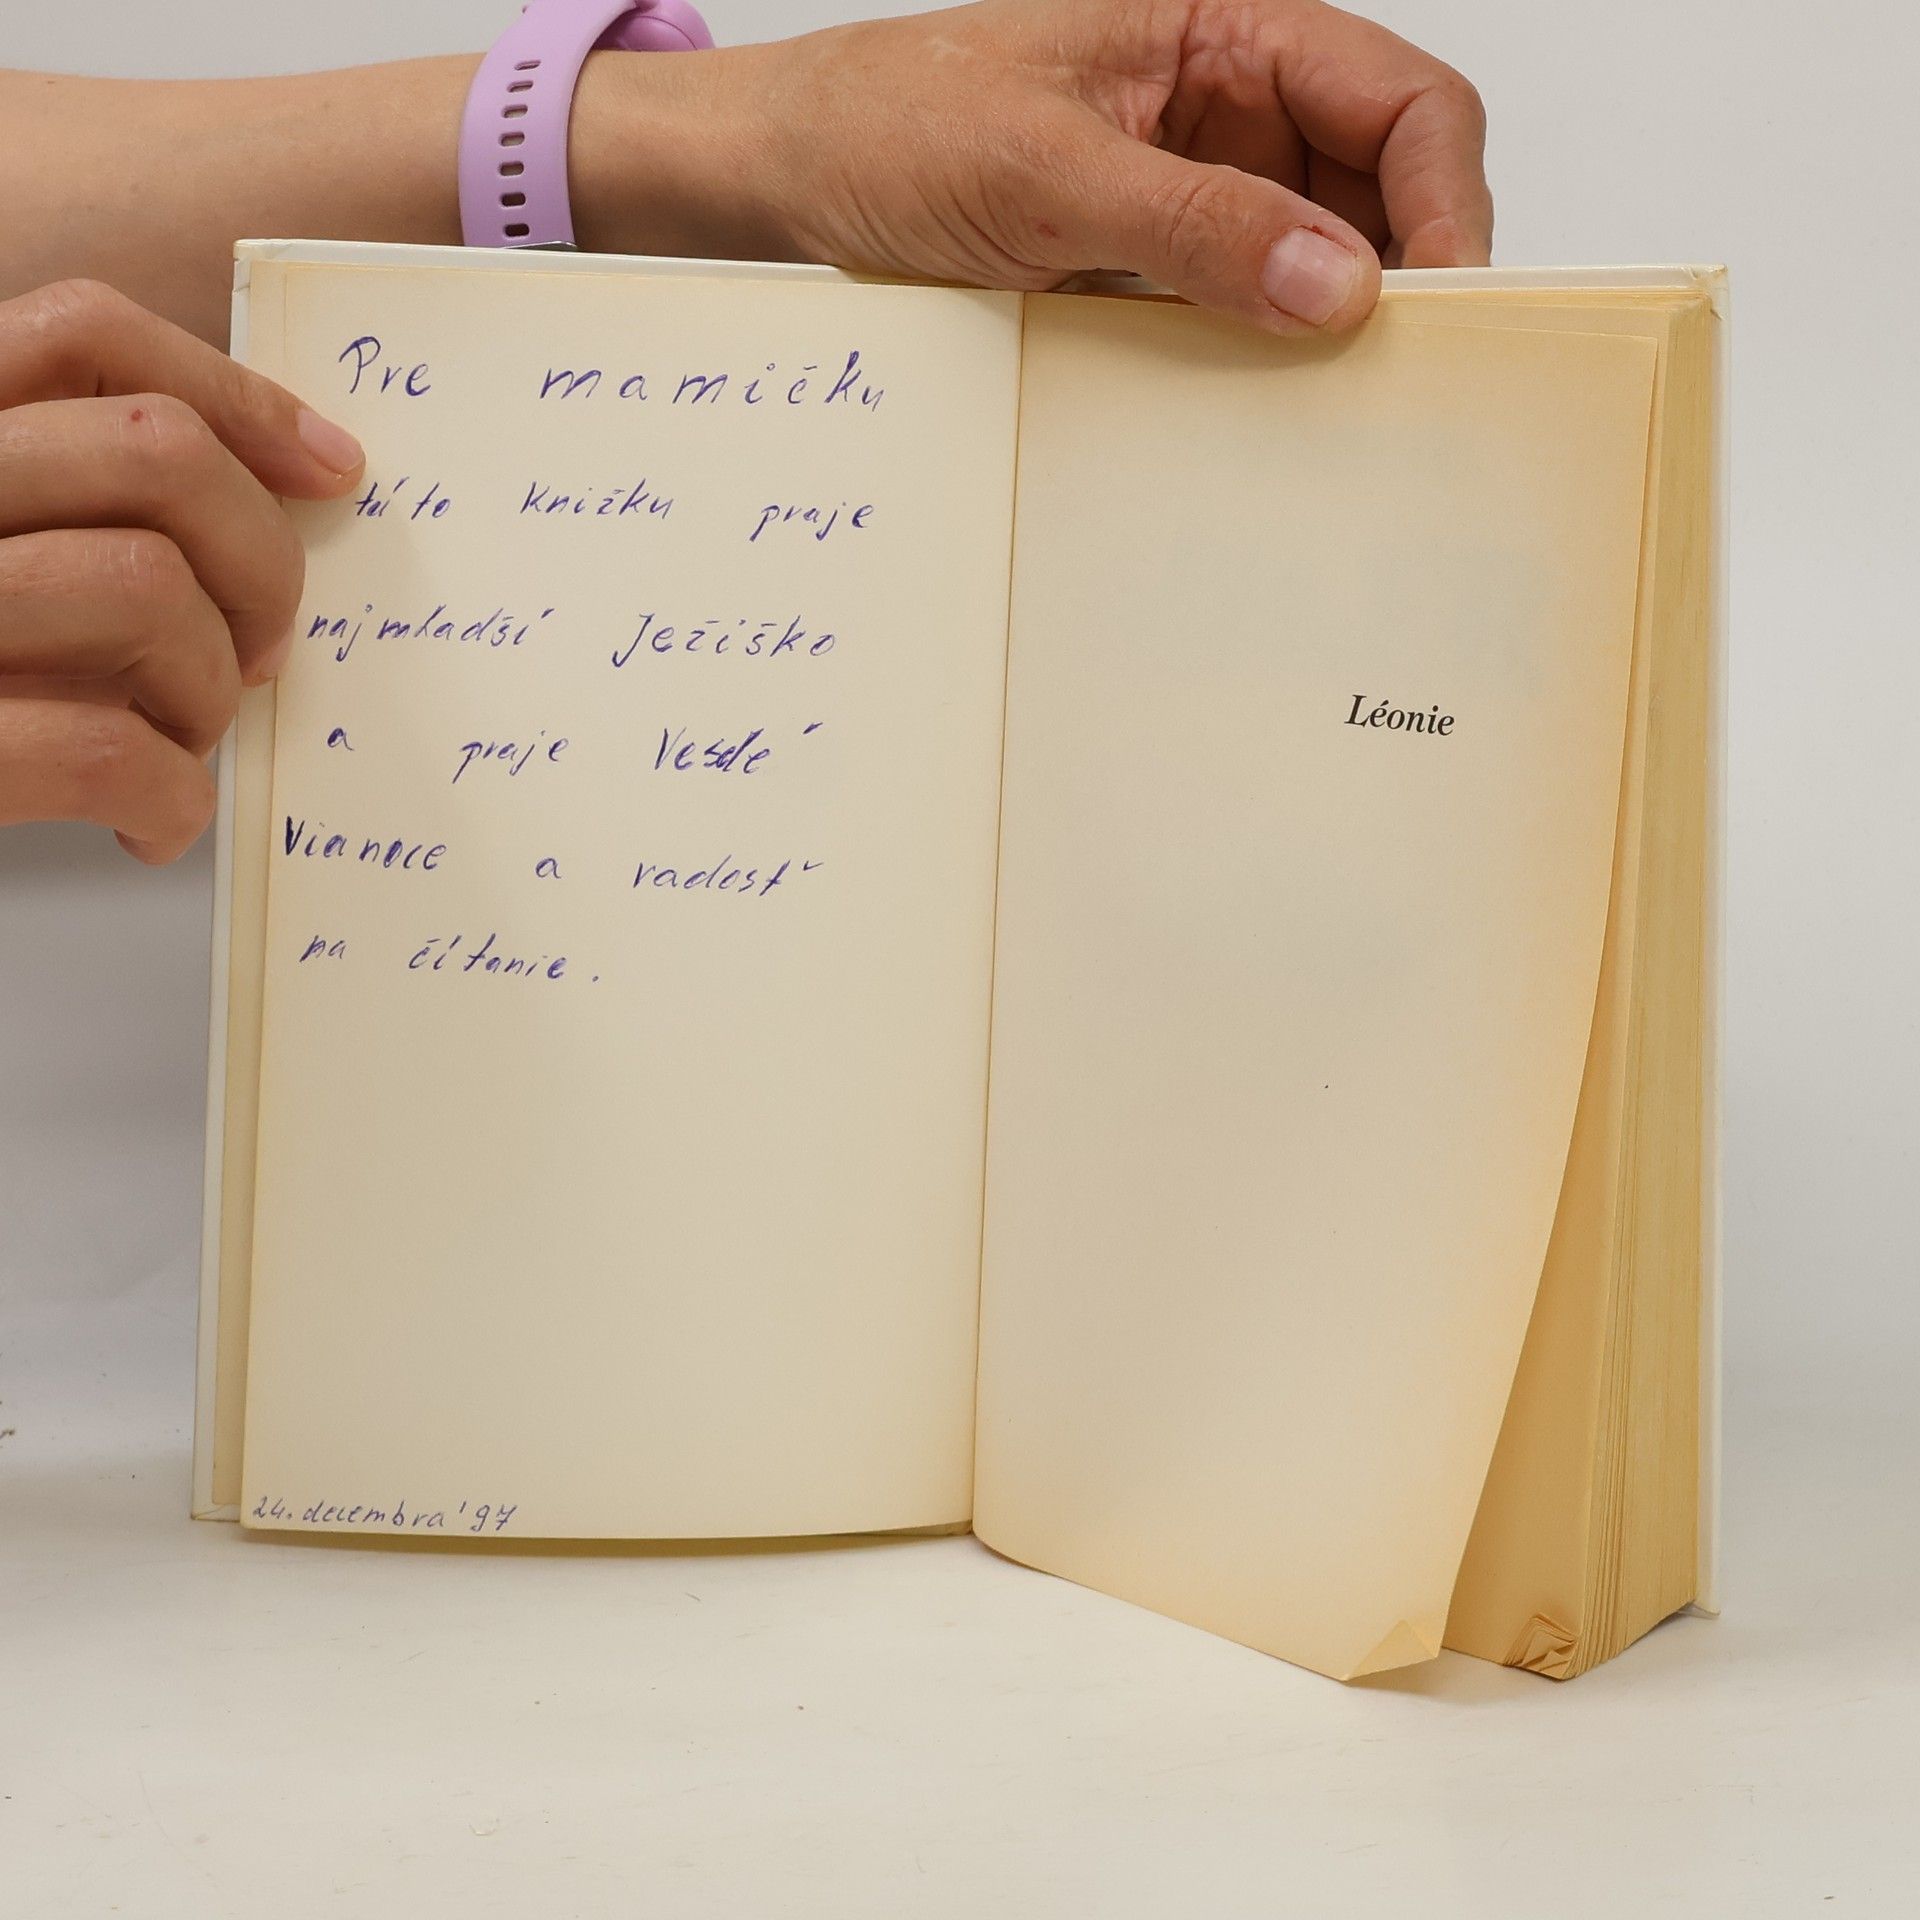 Pre mamičku
túto knižku praje
najmladší Ježiško
a praje Veselé
Vianoce a radosť
na čítanie.
24. decembra '97
Léonie